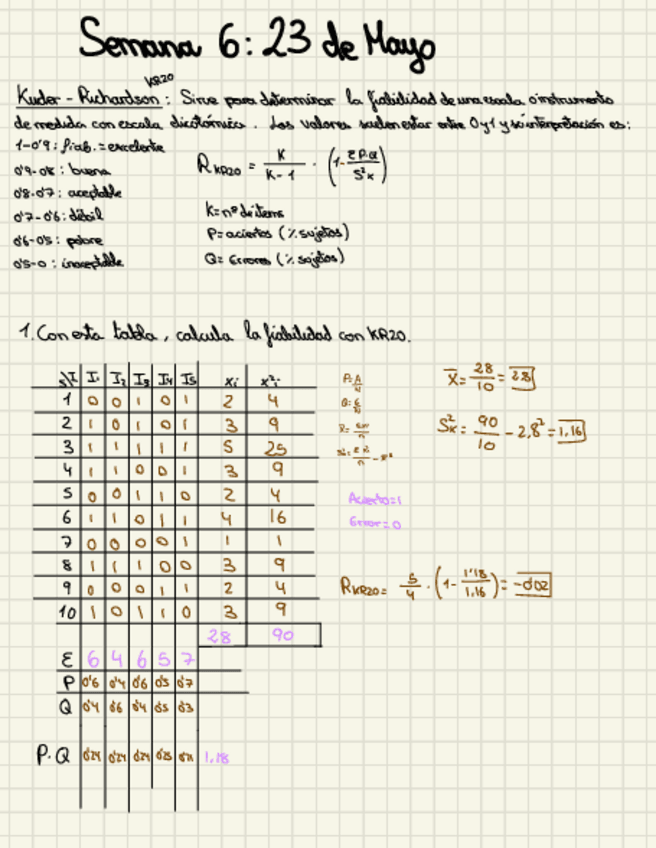 Semana 6: 23 de Mayo
KR20
Kuder - Richardson: Sirve para determinar la fiabilidad de una escala o instrumento
de medida con escala dicotómica. Los valores suelen estar entre 0 y 1 y su interpretación es:
1-0'9: fiab.=excelente
0'9-0'8: buena
0'8-0'7: aceptable
0'7-0'6: débil
0'6-0'5: pobre
0'5-0: inaceptable
R KR20 = K / K-1 · (1 - ΣP·Q / S²x)
K=nº de ítems
P=aciertos (% sujetos)
Q= Errores (% sujetos)
1. Con esta tabla, calcula la fiabilidad con KR20.
S\I I1 I2 I3 I4 I5 Xi X²i
1 0 0 1 0 1 2 4
2 1 0 1 0 1 3 9
3 1 1 1 1 1 5 25
4 1 1 0 0 1 3 9
5 0 0 1 1 0 2 4
6 1 1 0 1 1 4 16
7 0 0 0 0 1 1 1
8 1 1 1 0 0 3 9
9 0 0 0 1 1 2 4
10 1 0 1 1 0 3 9
28 90
Σ 6 4 6 5 7
P 0'6 0'4 0'6 0'5 0'7
Q 0'4 0'6 0'4 0'5 0'3
P.Q 0'24 0'24 0'24 0'25 0'21 1,18
Acierto=1
Error=0
X̄ = 28/10 = 2,8
S²x = 90/10 - 2,8² = 1,16
R KR20 = 5/4 · (1 - 1'18/1,16) = -0'02